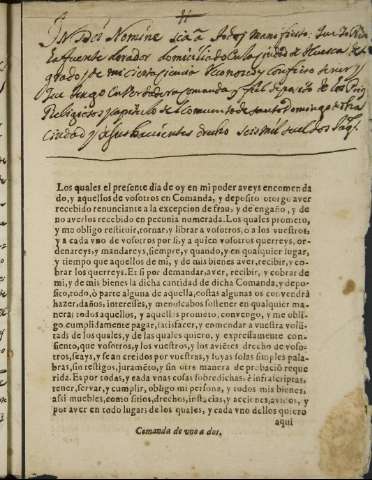 In Dei Nomine sea a todos manifiesto: Que
la fuente labrador domiciliado en la ciudad de Huesca de
grado y de mi cierta sciencia Reconozco y confieso dever y
que tengo en Verdadera comanda y fiel deposito de los
Religiosos y capitulo del Convento de santo Domingo
ciudad y a sus havientes drecho seis mil sueldos Jaq.
Los quales el presente dia de oy en mi poder aveys encomenda
do, y aquellos de vosotros en Comanda, y deposito otorgo aver
recebido renunciante a la excepcion de frau, y de engaño, y de
no averlos recebido en pecunia numerada. Los quales prometo,
y me obligo restituir, tornar, y librar a vosotros, ò a los vuestros,
y a cada vno de vosotros por si, y a quien vosotros querreys, or-
denareys, y mandareys, siempre, y quando, y en qualquier lugar,
y tiempo que aquellos de mi, y de mis bienes aver, recibir, y co-
brar los querreys. Et si por demandar, aver, recibir, y cobrar de
mi, y de mis bienes la dicha cantidad de dicha Comanda, y de-
posito, todo, ò parte alguna de aquella, costas algunas os convendrà
hazer, daños, interesses, y menoscabos sostener en qualquier ma-
nera; todos aquellos, y aquellas prometo, convengo, y me obli-
go, cumplidamente pagar, satisfacer, y emendar a vuestra volũ-
tad: de los quales, y de las quales quiero, y expressamente con-
siento, que vosotros, y los vuestros, y los avientes drecho de voso-
tros, seays, y sean creidos por vuestras, y suyas solas simples pala-
bras, sin testigos, jurameto, y sin otra manera de probaciõ reque
rida. Et por todas, y cada vnas cosas sobredichas, è infrascriptas,
tener, servar, y cumplir, obligo mi persona, y todos mis bienes,
assi muebles, como sitios, drechos, instãcias, y acciones, avidos, y
por aver en todo lugar: de los quales, y cada vno dellos quiero
aqui
Comanda de vno a dos.